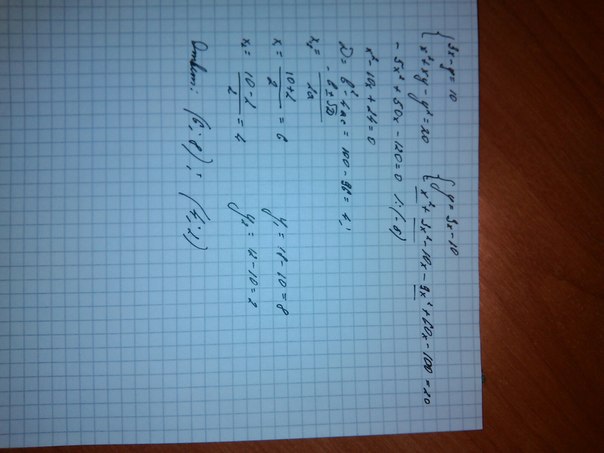 { 3x-y = 10
x²+xy-y²=20
{ y = 3x-10
x² + 3x²-10x - 9x²+60x-100=20
-5x²+50x-120=0 /:(-5)
x²-10x+24=0
D = b²-4ac = 100-96 = 4;
x₁,₂ = -b±√D / 2a
x₁ = 10+2 / 2 = 6   y₁ = 18-10=8
x₂ = 10-2 / 2 = 4   y₂ = 12-10=2
Ответ: (6; 8); (4; 2)